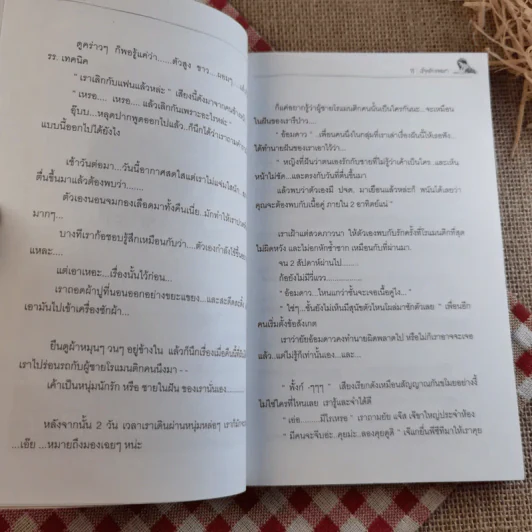 ดูคร่าวๆ ก็พอรู้แค่ว่า......ตัวสูง ขาว... ผอมๆ
รร. เทคนิค
" เราเลิกกับแฟนแล้วหล่ะ " เสียงนี้ดังมาจากคนข้างๆ
" เหรอ.... เหรอ.... แล้วเลิกกันเพราะอะไรหล่ะ "
อุ๊บบ...หลุดปากพูดออกไปแล้ว..ก็นึกได้ว่าเราถามคำ
แบบนี้ออกไปได้ยังไง
เช้าวันต่อมา...วันนี้อากาศสดใสแต่เราไม่แจ่มใสนัก
ตื่นขึ้นมาแล้วต้องพบว่า........
ตัวเองนอนจมกองเลือดมาทั้งคืนเนี่ย..มักทำให้เรา
มากๆ....
บางทีเราก็ชอบรู้สึกเหมือนกับว่า....ตัวเองกำลังใช้
แหละ....
แต่เอาเหอะ....เรื่องนั้นไว้ก่อน...
เราถอดผ้าปูที่นอนออกอย่างขยะแขยง...และสะดีดสะดิ้ง
เอามันไปเข้าเครื่องซักผ้า...
ยืนดูผ้าหมุนๆ วนๆ อยู่ข้างใน แล้วก็นึกเรื่องเมื่อคืนนี้
เราไปร่อนรถกับผู้ชายโรแมนติกคนนึงมา - -
เค้าเป็นหนุ่มนักรัก หรือ ชายในฝัน ของเรานั่นเอง..........
หลังจากนั้น 2 วัน เวลาเราเดินผ่านหนุ่มหล่อๆ เราก็มัก
...เอ๊ย ...หมายถึงมองเฉยๆ หน่ะ
ก็แค่อยากรู้ว่าผู้ชายโรแมนติกคนนั้นเป็นใครกันนะ.. จะเหมือน
ในฝันของเรารึป่าว...
" อ้อมดาว " ..เพื่อนคนนึงในกลุ่มที่เราเล่าเรื่องฝันนี้ให้เธอฟัง
ได้ทำนายฝันของเราเอาไว้ว่า...
" หญิงที่ฝันว่าตนเองรักกับชายที่ไม่รู้ว่าเค้าเป็นใคร..และเห็น
หน้าไม่ชัด...และตรงกับวันที่ตื่นขึ้น...
แล้วพบว่าตัวเองมี ปจด. มาเยือนแล้วหล่ะก็ พนันได้เลยว่า
คุณจะต้องพบกับเนื้อคู่ ภายใน 2 อาทิตย์แน่ "
เราเฝ้าแต่สวดภาวนา ให้ตัวเองพบกับรักครั้งที่โรแมนติกที่สุด
ไม่ผิดหวัง และไม่อกหักซ้ำซาก เหมือนกับที่ผ่านมา.
จน 2 สัปดาห์ผ่านไป......
ก็ยังไม่มีวี่แวว.......
" อ้อมดาว...ไหนแกว่าชั้นจะเจอเนื้อคู่ไง... "
" ใช่ๆ...ชั้นยังไม่เห็นมีสุนัขตัวไหนโผล่มาซักตัวเลย " เพื่อนอีก
คนเริ่มตั้งข้อสังเกต
เราว่ายัยอ้อมดาวคงทำนายผิดพลาดไป หรือไม่ก็เราอาจจะเจอ
แล้ว..แต่ไม่รู้ก็เท่านั้นเอง...และ....
" ทั้งก์ -ๆๆๆ " เสียงเรียกดังเหมือนสัญญาณกันขโมยอย่างงี้
ไม่ใช่ใครที่ไหนเลย เรารู้และจำได้ดี
" เจ๋อ.......มีไรเหรอ " เราถามยัย แจ๊ส เจ้าชาใหญ่ประจำห้อง
" มีคนจะจีบอ่ะ..คุยม่ะ..ลองคุยดูดิ " เจ๊แกยื่นพีซีทีมาให้เราคุย